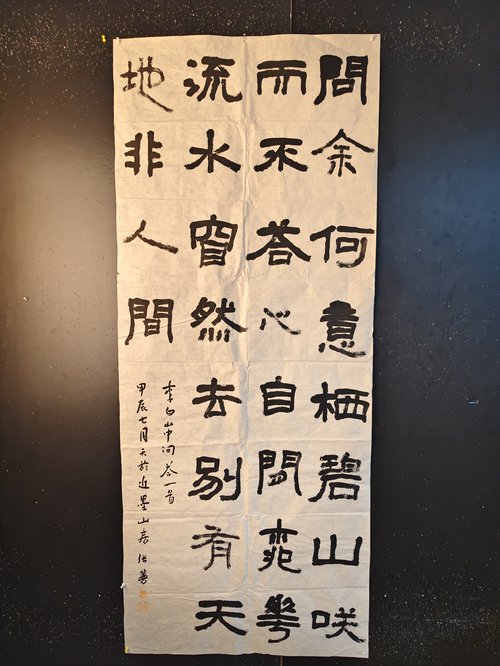 問余何意栖碧山咲
而不答心自閒桃華
流水窅然去別有天
地非人間
李白山中问答一首
甲辰七月於近墨山房